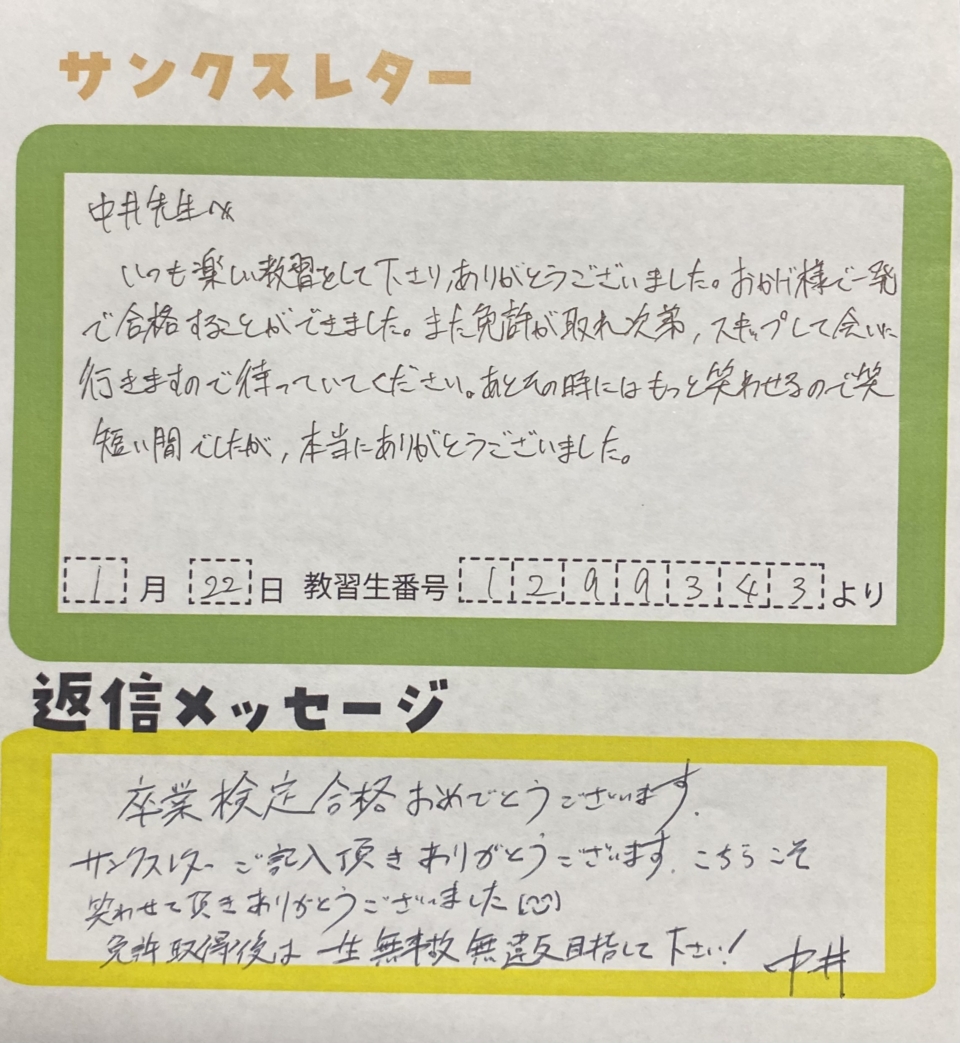 サンクスレター
中井先生へ
いつも楽しい教習をして下さり、ありがとうございました。おかげ様で一発
で合格することができました。また免許が取れ次第、スキップして会いに
行きますので待っていてください。あとその時にはもっと笑わせるので笑
短い間でしたが、本当にありがとうございました。
1月 22日 教習生番号 1299343より
返信メッセージ
卒業検定合格おめでとうございます。
サンクスレターご記入頂きありがとうございます。こちらこそ
笑わせて頂きありがとうございました
免許取得後は一生無事故無違反目指して下さい! 中井